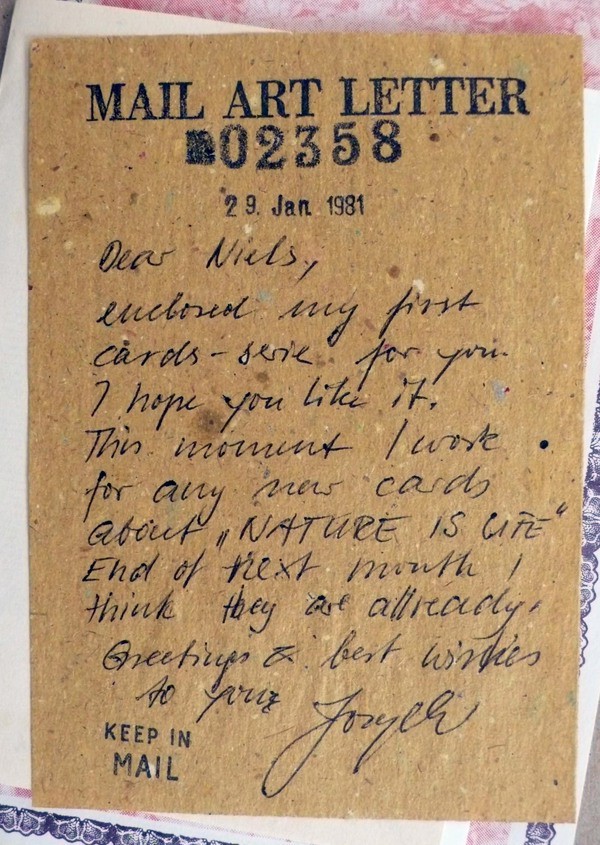 MAIL ART LETTER
02358
29. Jan. 1981
Dear Niels,
enclosed my first
cards-serie for you.
I hope you like it.
This moment I work
for any new cards
about „NATURE IS LIFE“
End of next month I
think they are allready.
Greetings & best wishes
to you
KEEP IN
MAIL